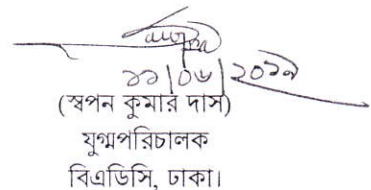 ১১/০৬/২০১৯
(স্বপন কুমার দাস)
যুগ্মপরিচালক
বিএডিসি, ঢাকা।